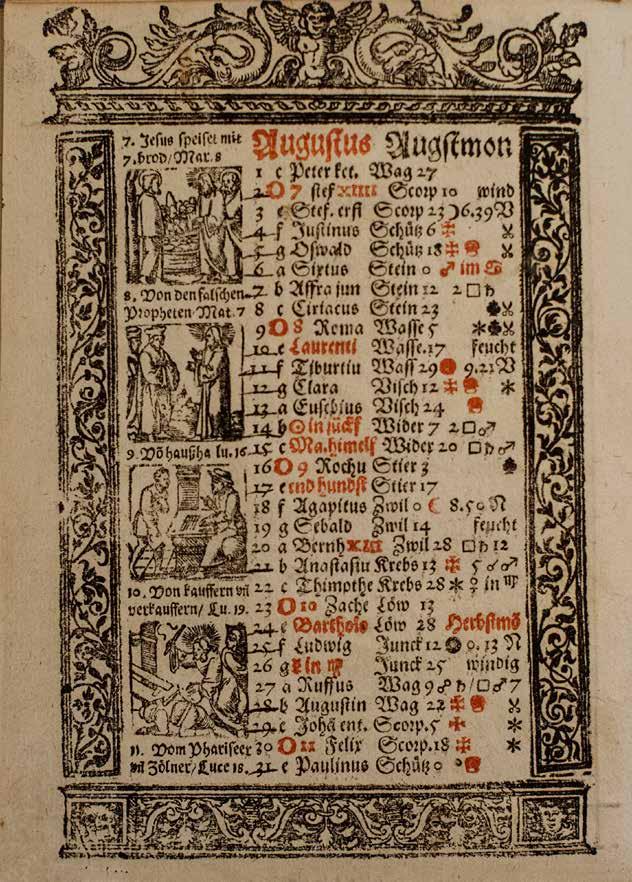 7. Jesus speiset mit
7. brod/ Mar. 8
Augustus Augstmon
1 c Peter ket. Wag 27
2 7 stef XIIII Scorp 10 wind
3 e Stef. erfi Scorp 23 ☽ 6.39 V
4 f Justinus Schütz 6 ✠ ✂
5 g Oswald Schütz 18 ✠ ✂
6 a Sixtus Stein 0 ♂ im ♋
8. Von den falschen
Propheten Mat. 7
7 b Affra jun Stein 12 2 □ ♄
8 c Ciriacus Stein 23 ✂
9 8 Roma Wasse 5 ✱ ✂
10 e Laurenti Wasse. 17 feucht
11 f Tiburtiu Wass 29 9.21 V
12 g Clara Visch 12 ✠ ✱
13 a Eusebius Visch 24
14 b ☉ in jückf Wider 7 2 □ ♂
9. Võ haußha lu. 16
15 c Ma. himelf Wider 20 □ ♄ ♂
16 9 Rochu Stier 3
17 e end hundst Stier 17
18 f Agapitus Zwil 0 ☾ 8.50 N
19 g Sebald Zwil 14 feucht
20 a Bernh XIII Zwil 28 □ ♄ 12
21 b Anastasiu Krebs 13 ✠ 5 ☌ ♂
10. Von kauffern vñ
verkauffern/ Lu. 19.
22 c Thimothe Krebs 28 ✱ ♀ in ♍
23 10 Zache Löw 13
24 e Bartholo Löw 28 Herbstmõ
25 f Ludwig Junck 12 0. 13 N
26 g in ♍ Junck 25 windig
27 a Ruffus Wag 9 ☍ ♄/ □ ♂ 7
28 b Augustin Wag 22 ✠ ✂
29 c Johã ent. Scorp. 5 ✠ ✱
11. Vom Phariseer
vñ Zölner/ Luce 18.
30 11 Felix Scorp. 18 ✠ ✱
31 e Paulinus Schütz 0